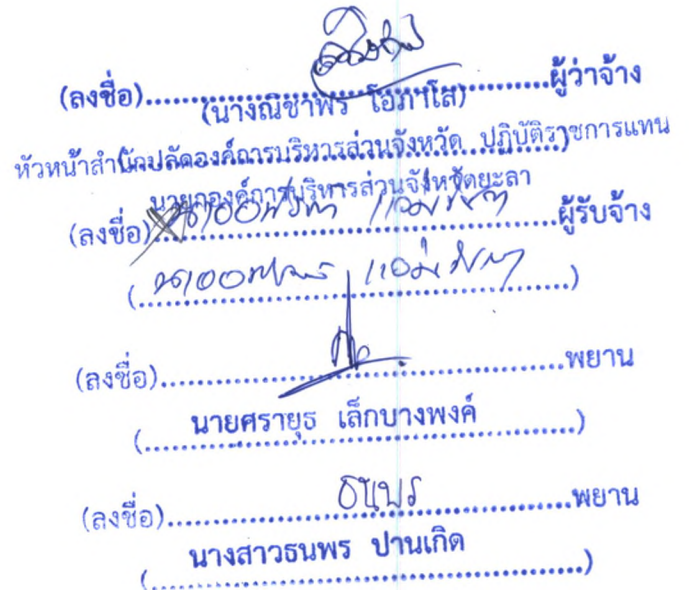 (ลงชื่อ)............................................ผู้ว่าจ้าง
(นางณิชาพร โอภาโส)
หัวหน้าสำนักปลัดองค์การบริหารส่วนจังหวัด ปฏิบัติราชการแทน
นายกองค์การบริหารส่วนจังหวัดยะลา
(ลงชื่อ)............................................ผู้รับจ้าง
(............................................)
(ลงชื่อ)............................................พยาน
(นายศรายุธ เล็กบางพงค์)
(ลงชื่อ)..........ธนพร..........พยาน
(นางสาวธนพร ปานเกิด)